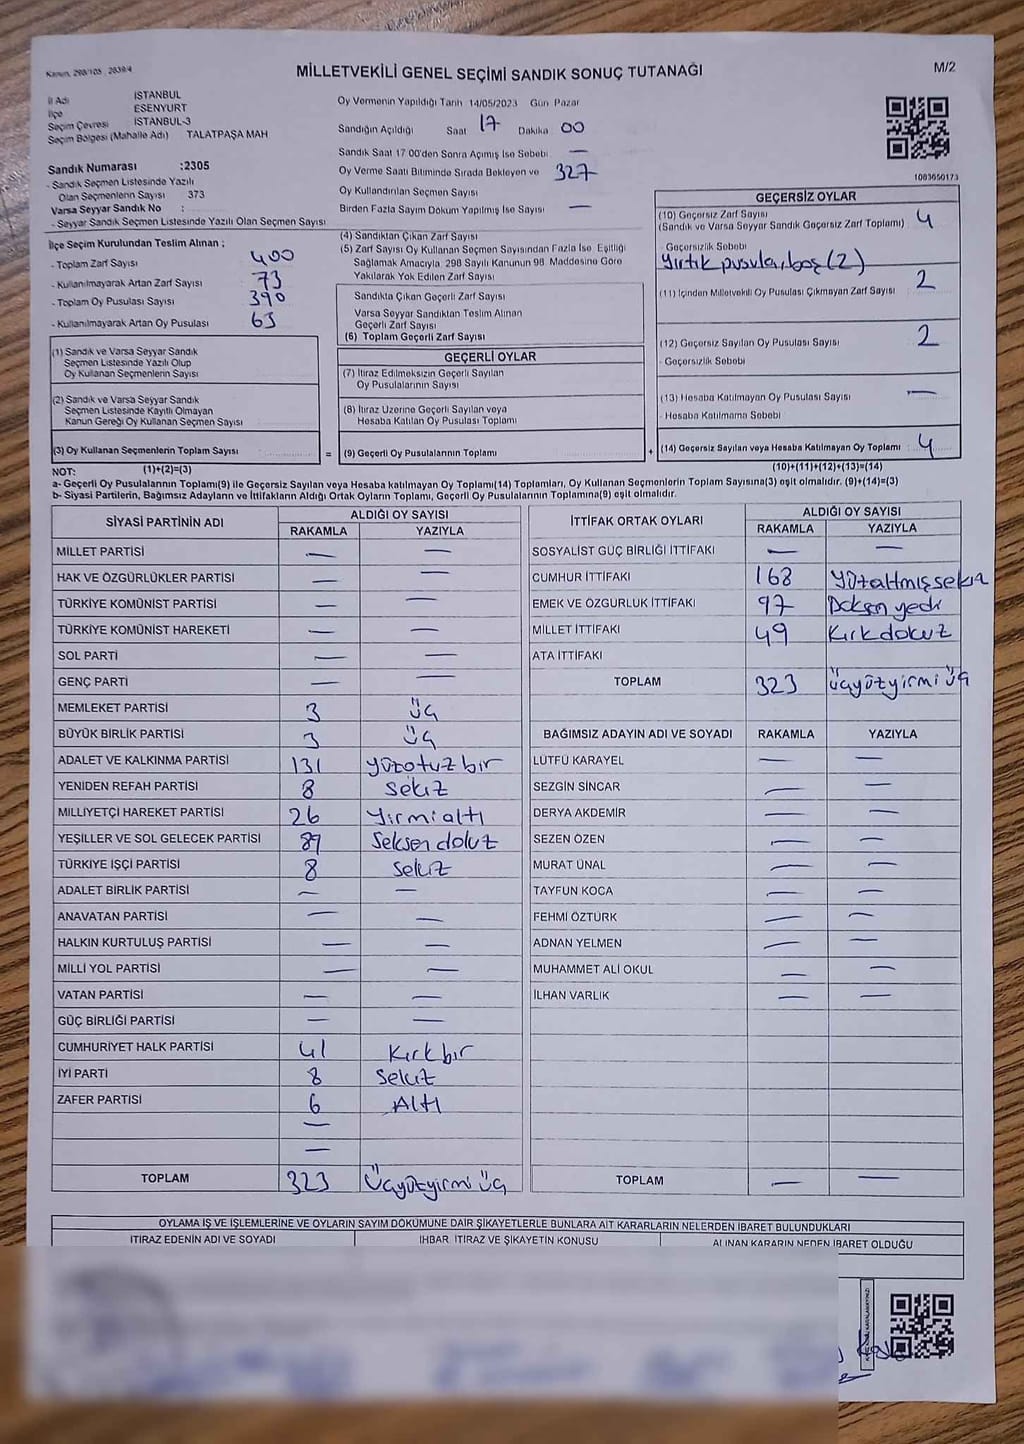 Kanun, 298/105 , 2839/4
MİLLETVEKİLİ GENEL SEÇİMİ SANDIK SONUÇ TUTANAĞI
M/2
İl Adı İSTANBUL
İlçe ESENYURT
Seçim Çevresi İSTANBUL-3
Seçim Bölgesi (Mahalle Adı) TALATPAŞA MAH
Sandık Numarası :2305
- Sandık Seçmen Listesinde Yazılı
Olan Seçmenlerin Sayısı 373
Varsa Seyyar Sandık No :
- Seyyar Sandık Seçmen Listesinde Yazılı Olan Seçmen Sayısı
Oy Vermenin Yapıldığı Tarih 14/05/2023 Gün Pazar
Sandığın Açıldığı Saat 17 Dakika 00
Sandık Saat 17 00'den Sonra Açımış İse Sebebi —
Oy Verme Saati Bitiminde Sırada Bekleyen ve 327
Oy Kullandırılan Seçmen Sayısı
Birden Fazla Sayım Döküm Yapılmış İse Sayısı —
1083650173
İlçe Seçim Kurulundan Teslim Alınan ;
- Toplam Zarf Sayısı 400
- Kullanılmayarak Artan Zarf Sayısı 73
- Toplam Oy Pusulası Sayısı 390
- Kullanılmayarak Artan Oy Pusulası 63
(1) Sandık ve Varsa Seyyar Sandık
Seçmen Listesinde Yazılı Olup
Oy Kullanan Seçmenlerin Sayısı
(2) Sandık ve Varsa Seyyar Sandık
Seçmen Listesinde Kayıtlı Olmayan
Kanun Gereği Oy Kullanan Seçmen Sayısı
(3) Oy Kullanan Seçmenlerin Toplam Sayısı
(4) Sandıktan Çıkan Zarf Sayısı
(5) Zarf Sayısı Oy Kullanan Seçmen Sayısından Fazla İse, Eşitliği
Sağlamak Amacıyla, 298 Sayılı Kanunun 98. Maddesine Göre
Yakılarak Yok Edilen Zarf Sayısı
Sandıkta Çıkan Geçerli Zarf Sayısı
Varsa Seyyar Sandıktan Teslim Alınan
Geçerli Zarf Sayısı
(6) Toplam Geçerli Zarf Sayısı
GEÇERLİ OYLAR
(7) İtiraz Edilmeksizin Geçerli Sayılan
Oy Pusulalarının Sayısı
(8) İtiraz Üzerine Geçerli Sayılan veya
Hesaba Katılan Oy Pusulası Toplamı
= (9) Geçerli Oy Pusulalarının Toplamı
GEÇERSİZ OYLAR
(10) Geçersiz Zarf Sayısı 4
(Sandık ve Varsa Seyyar Sandık Geçersiz Zarf Toplamı)
- Geçersizlik Sebebi
Yırtık pusula, boş (2)
(11) İçinden Milletvekili Oy Pusulası Çıkmayan Zarf Sayısı 2
(12) Geçersiz Sayılan Oy Pusulası Sayısı 2
- Geçersizlik Sebebi
(13) Hesaba Katılmayan Oy Pusulası Sayısı —
- Hesaba Katılmama Sebebi
+ (14) Geçersiz Sayılan veya Hesaba Katılmayan Oy Toplamı : 4
NOT: (1)+(2)=(3)
(10)+(11)+(12)+(13)=(14)
a- Geçerli Oy Pusulalarının Toplamı(9) ile Geçersiz Sayılan veya Hesaba katılmayan Oy Toplamı(14) Toplamları, Oy Kullanan Seçmenlerin Toplam Sayısına(3) eşit olmalıdır. (9)+(14)=(3)
b- Siyasi Partilerin, Bağımsız Adayların ve İttifakların Aldığı Ortak Oyların Toplamı, Geçerli Oy Pusulalarının Toplamına(9) eşit olmalıdır.
SİYASİ PARTİNİN ADI ALDIĞI OY SAYISI
RAKAMLA YAZIYLA
MİLLET PARTİSİ — —
HAK VE ÖZGÜRLÜKLER PARTİSİ — —
TÜRKİYE KOMÜNİST PARTİSİ — —
TÜRKİYE KOMÜNİST HAREKETİ — —
SOL PARTİ — —
GENÇ PARTİ — —
MEMLEKET PARTİSİ 3 üç
BÜYÜK BİRLİK PARTİSİ 3 üç
ADALET VE KALKINMA PARTİSİ 131 yüzotuz bir
YENİDEN REFAH PARTİSİ 8 sekiz
MİLLİYETÇİ HAREKET PARTİSİ 26 Yirmi altı
YEŞİLLER VE SOL GELECEK PARTİSİ 89 Seksen dokuz
TÜRKİYE İŞÇİ PARTİSİ 8 sekiz
ADALET BİRLİK PARTİSİ — —
ANAVATAN PARTİSİ — —
HALKIN KURTULUŞ PARTİSİ — —
MİLLİ YOL PARTİSİ — —
VATAN PARTİSİ — —
GÜÇ BİRLİĞİ PARTİSİ — —
CUMHURİYET HALK PARTİSİ 41 Kırk bir
İYİ PARTİ 8 Sekiz
ZAFER PARTİSİ 6 Altı
—
—
TOPLAM 323 Üçyüzyirmi üç
İTTİFAK ORTAK OYLARI ALDIĞI OY SAYISI
RAKAMLA YAZIYLA
SOSYALİST GÜÇ BİRLİĞİ İTTİFAKI — —
CUMHUR İTTİFAKI 168 Yüzaltmışsekiz
EMEK VE ÖZGÜRLÜK İTTİFAKI 97 Doksan yedi
MİLLET İTTİFAKI 49 Kırk dokuz
ATA İTTİFAKI
TOPLAM 323 üçyüzyirmi üç
BAĞIMSIZ ADAYIN ADI VE SOYADI RAKAMLA YAZIYLA
LÜTFÜ KARAYEL — —
SEZGİN SİNCAR — —
DERYA AKDEMİR — —
SEZEN ÖZEN — —
MURAT ÜNAL — —
TAYFUN KOCA — —
FEHMİ ÖZTÜRK — —
ADNAN YELMEN — —
MUHAMMET ALİ OKUL — —
İLHAN VARLIK — —
TOPLAM — —
OYLAMA İŞ VE İŞLEMLERİNE VE OYLARIN SAYIM DÖKÜMÜNE DAİR ŞİKAYETLERLE BUNLARA AİT KARARLARIN NELERDEN İBARET BULUNDUKLARI
İTİRAZ EDENİN ADI VE SOYADI İHBAR, İTİRAZ VE ŞİKAYETİN KONUSU ALINAN KARARIN NEDEN İBARET OLDUĞU